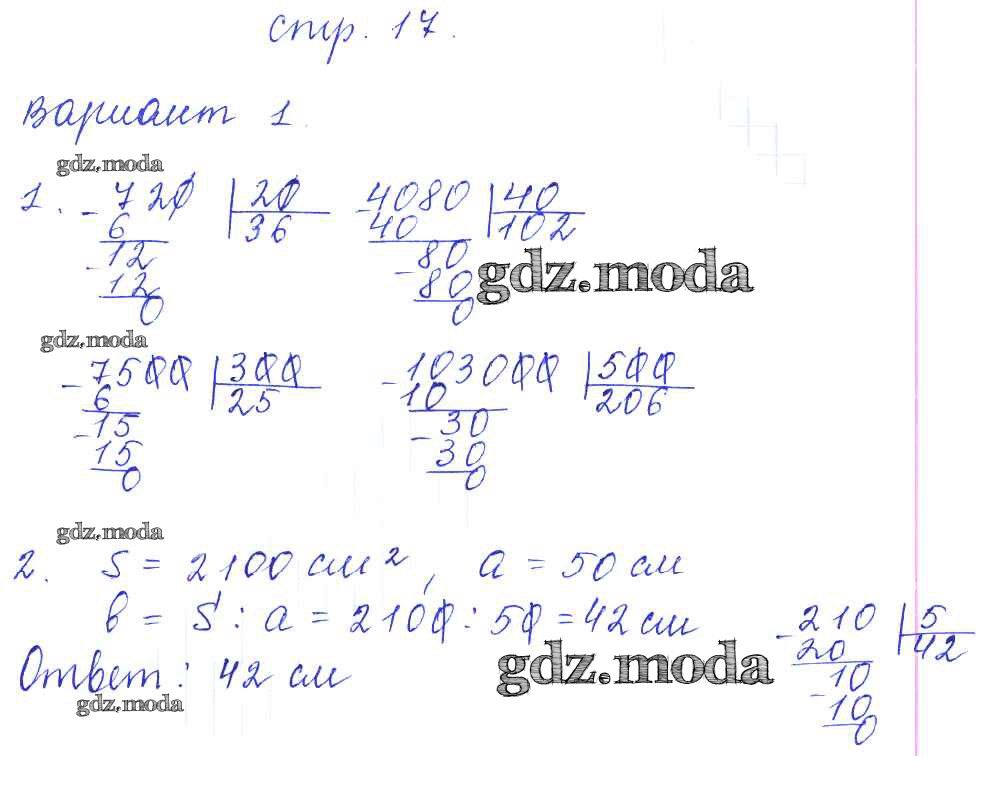 стр. 17.
Вариант 1.
gdz.moda
1. - 720 | 20 - 4080 | 40
6 | 36 40 | 102
- 12 - 80
12 80
0 0
gdz.moda
gdz.moda
- 7500 | 300 - 103000 | 500
6 | 25 10 | 206
- 15 - 30
15 30
0 0
gdz.moda
2. S = 2100 см², a = 50 см
в = S : a = 2100 : 50 = 42 см - 210 | 5
20 | 42
Ответ: 42 см - 10
10
0
gdz.moda
gdz.moda